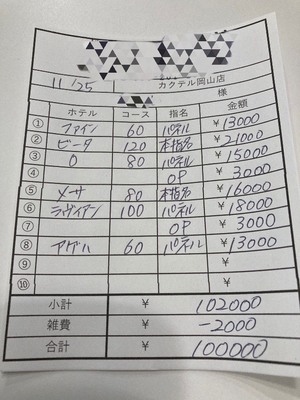 11/25 カクテル岡山店
様
ホテル コース 指名 金額
① ファイン 60 パネル ¥13000
② ピータ 120 本指名 ¥21000
③ O 80 パネル ¥15000
④ OP ¥3000
⑤ メサ 80 本指名 ¥16000
⑥ ラヴィアン 100 パネル ¥18000
⑦ OP ¥3000
⑧ アゲハ 60 パネル ¥13000
⑨ ¥
⑩ ¥
小計 ¥ 102000
雑費 ¥ -2000
合計 ¥ 100000